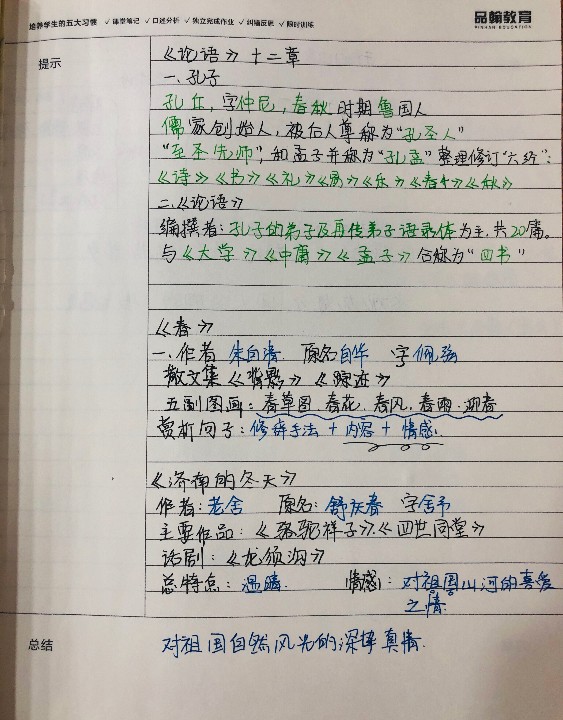 培养学生的五大习惯 ✓课堂笔记 ✓口述分析 ✓独立完成作业 ✓纠错反思 ✓限时训练
品翰教育
PINHAN EDUCATION
提示
《论语》十二章
一、孔子
孔丘，字仲尼，春秋时期鲁国人
儒家创始人，被后人尊称为“孔圣人”
“至圣先师”，和孟子并称为“孔孟”整理修订“六经”：
《诗》《书》《礼》《易》《乐》《春》《秋》
二、《论语》
编撰者：孔子的弟子及再传弟子语录体为主，共20篇。
与《大学》《中庸》《孟子》合称为“四书”
《春》
一、作者 朱自清 原名自华 字佩弦
散文集《背影》《踪迹》
五副图画：春草图、春花、春风、春雨、迎春
赏析句子：修辞手法 + 内容 + 情感
《济南的冬天》
作者：老舍 原名：舒庆春 字舍予
主要作品：《骆驼祥子》《四世同堂》
话剧：《龙须沟》
总特点：温晴 情感：对祖国山河的喜爱
之情
总结
对祖国自然风光的深挚真情.